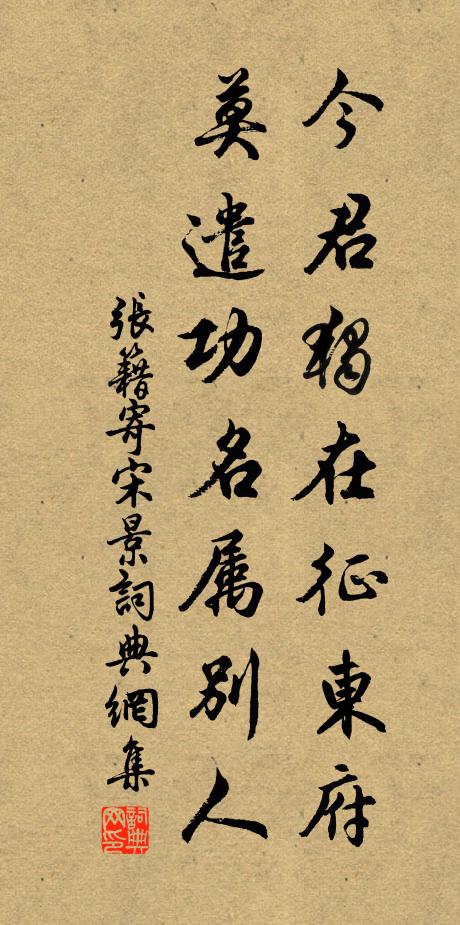 今君獨在征東府
莫遣功名属別人
張籍寄宋景詞典網集
詞典网印